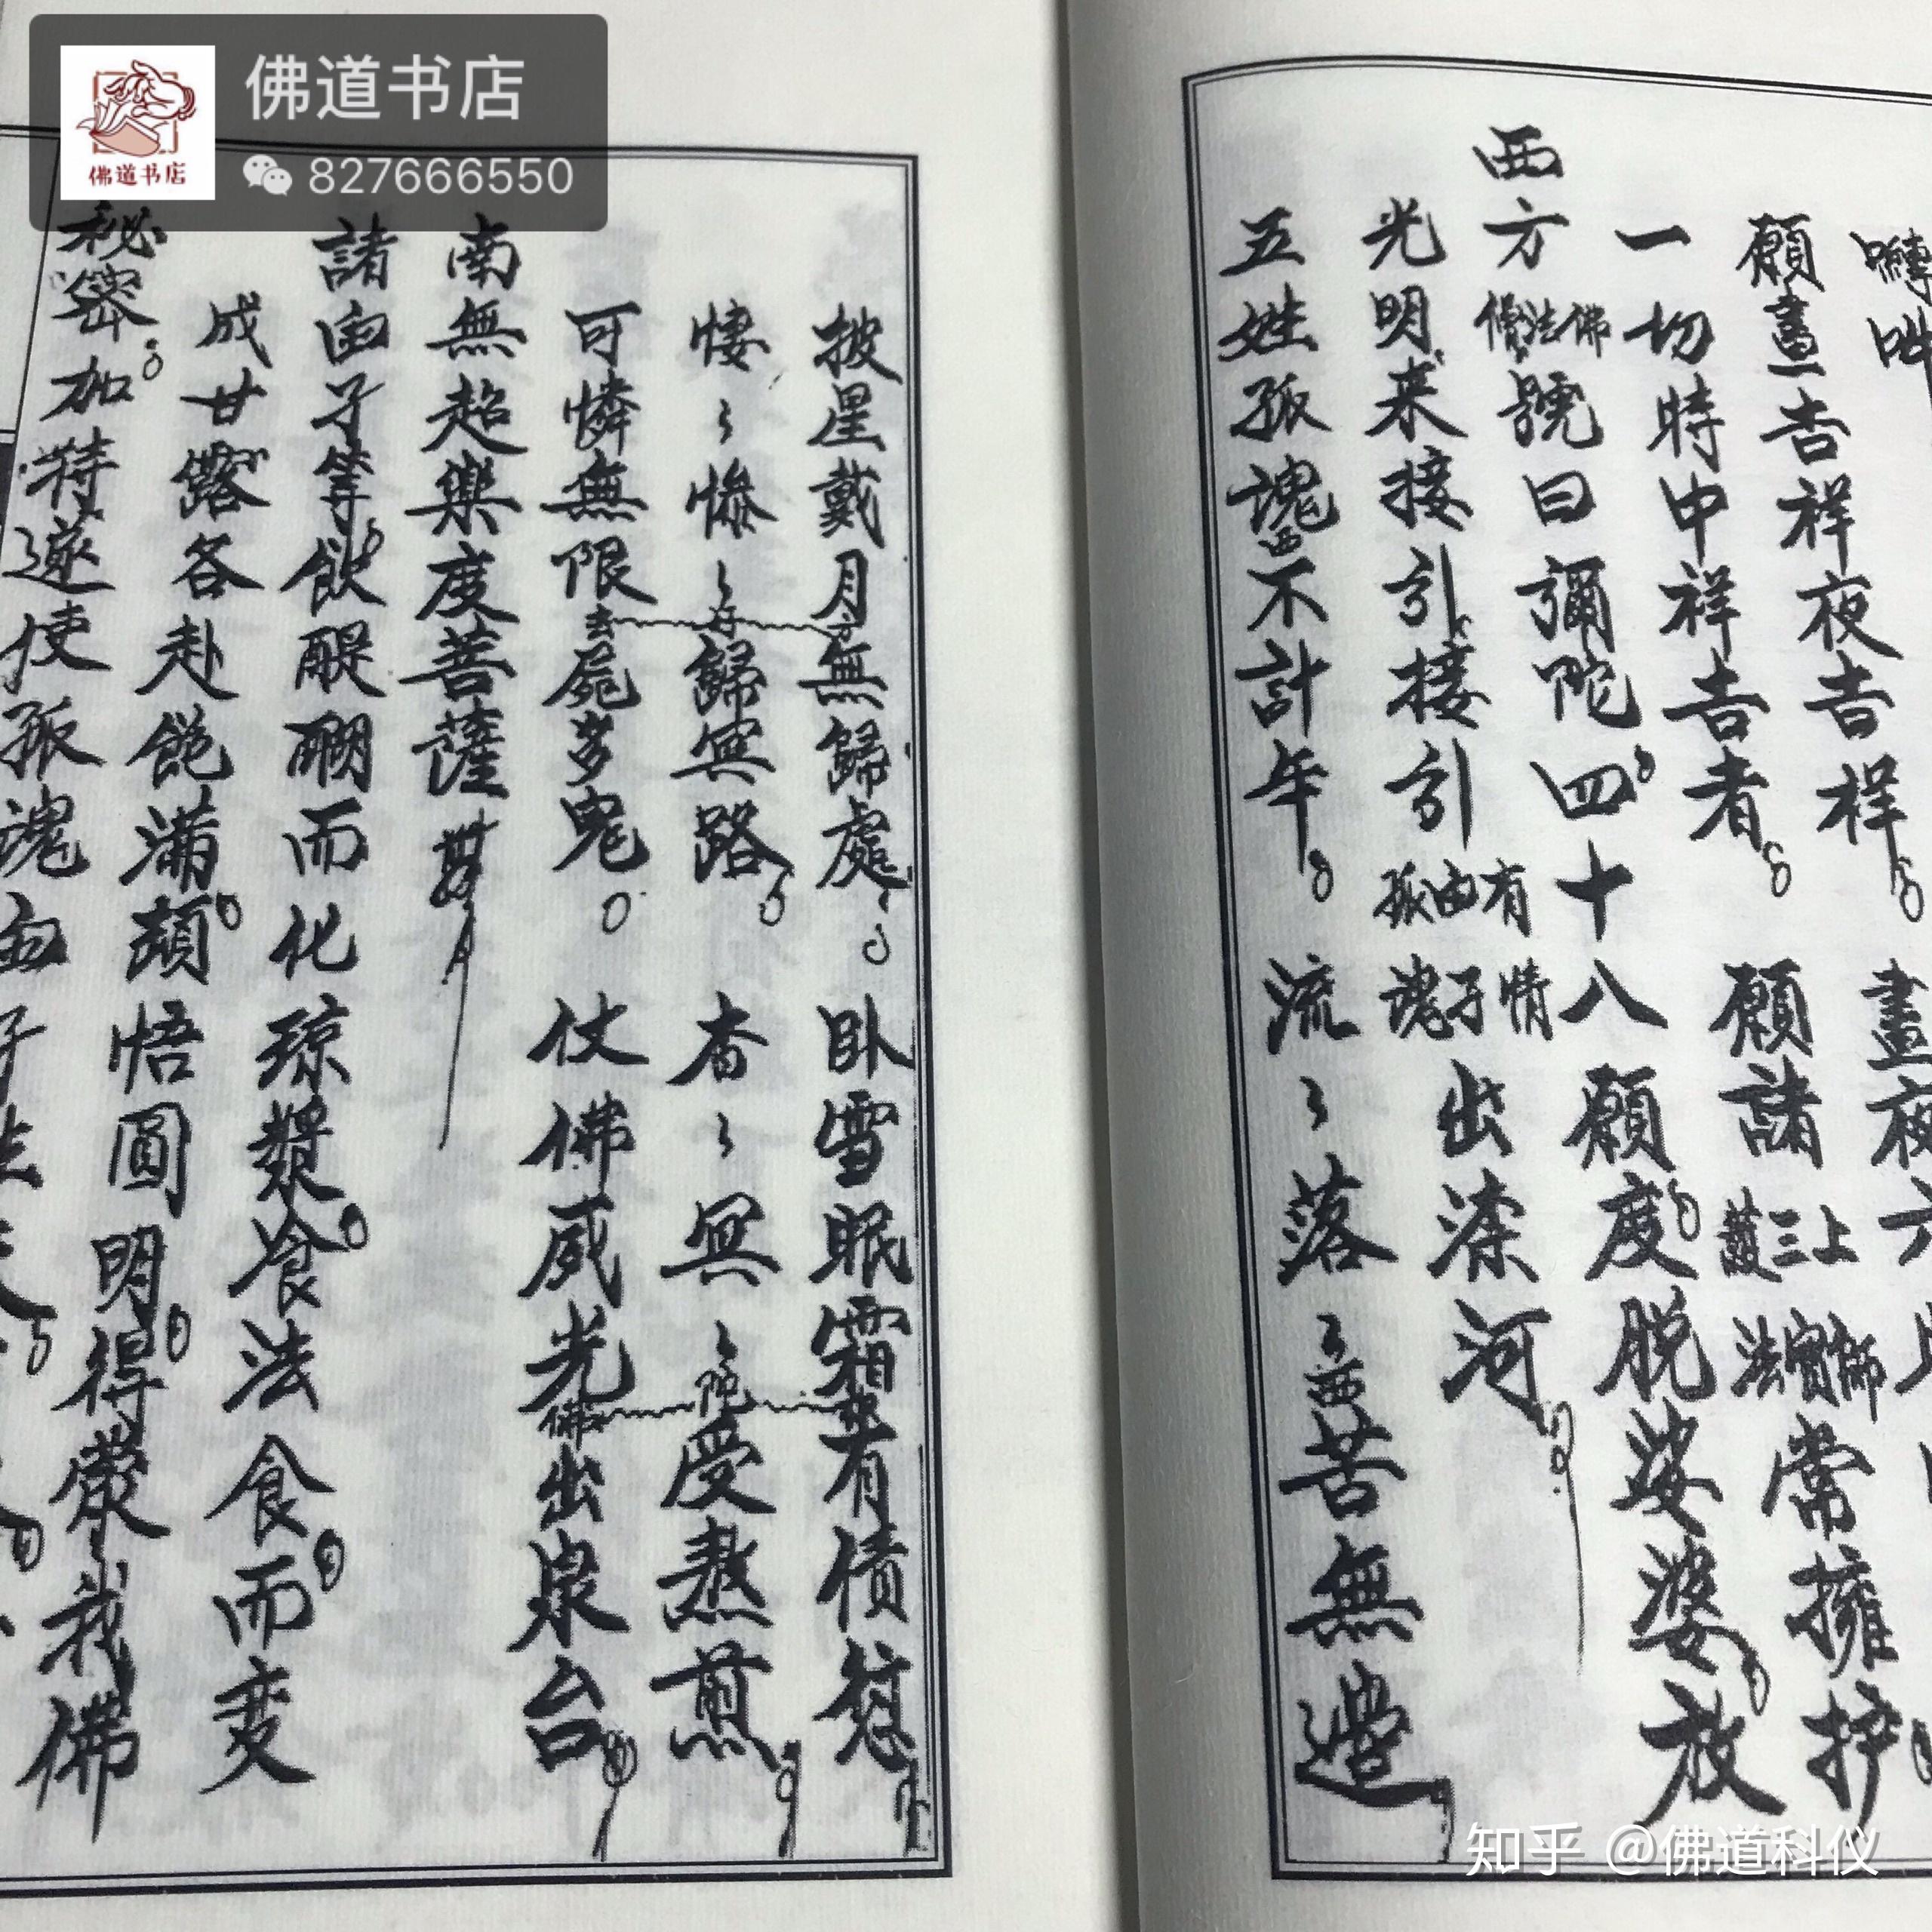 佛道书店
佛道书店
827666550
願晝吉祥夜吉祥 晝夜六時
一切時中祥吉者 願諸上三寶師法護常擁护
西方佛法僧號曰彌陀四十八願度脱娑婆放
光明来接引接引有情由子孤魂出滦河
五姓孤魂不計年 流〻落〻西苦無邊
披星戴月無歸處 卧雪眠霜有債愆
悽〻慘〻歸冥路 杳〻冥〻受熬煎
可憐無限屍多鬼 仗佛威光佛出泉台
南無超樂度菩薩
諸由子等飲醍醐而化琼漿食法食而变
成甘露各赴飽滿願悟圓明得蒙我佛
秘密加持遂使孤魂由子
知乎 @佛道科仪